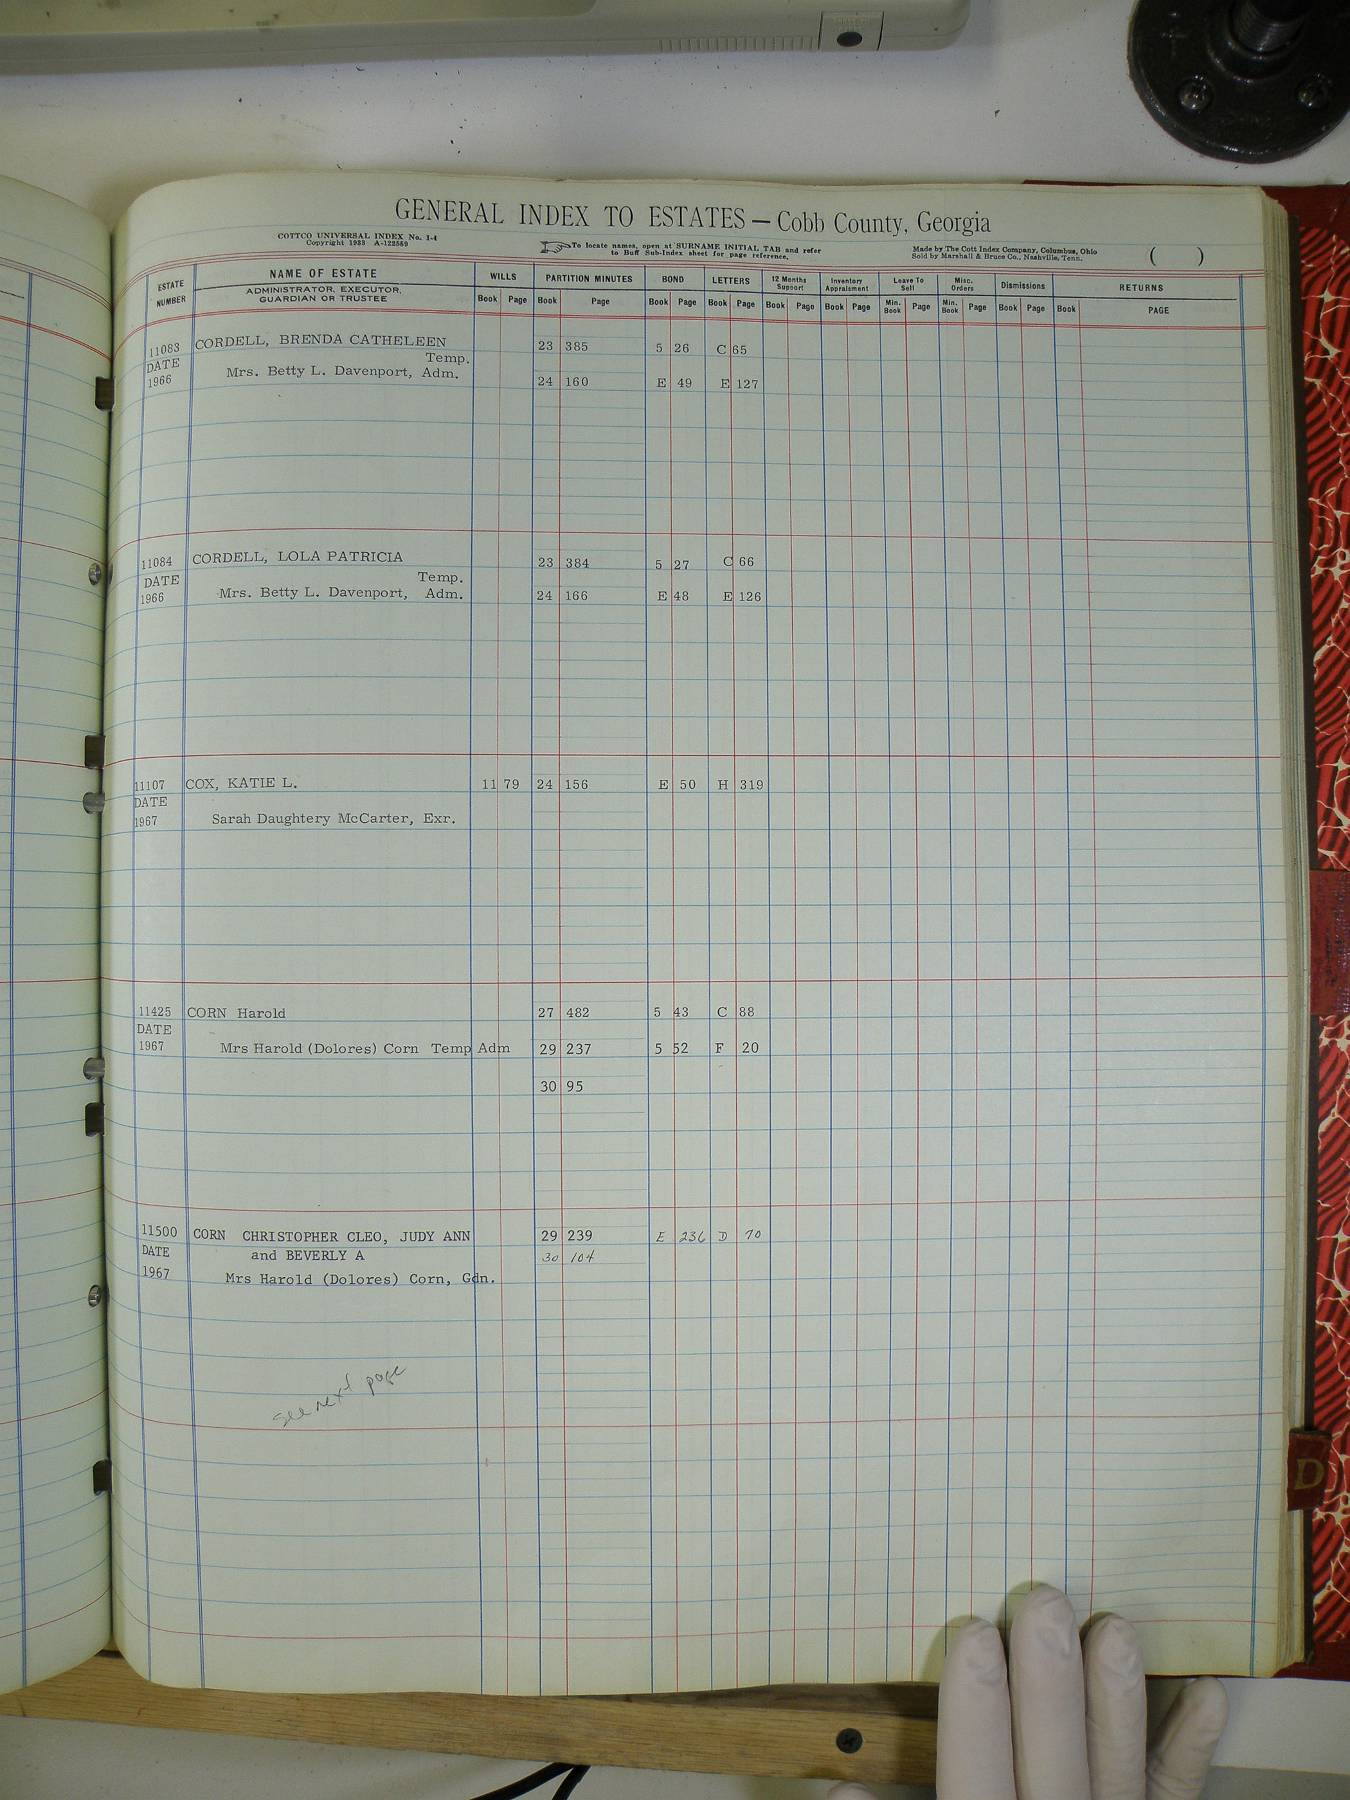 GENERAL INDEX TO ESTATES — Cobb County, Georgia
COTTCO UNIVERSAL INDEX No. 1-4
Copyright 1933 A-122569
To locate names, open at SURNAME INITIAL TAB and refer
to Buff Sub-Index sheet for page reference.
Made by The Cott Index Company, Columbus, Ohio
Sold by Marshall & Bruce Co., Nashville, Tenn.
( )
ESTATE NUMBER
NAME OF ESTATE
ADMINISTRATOR, EXECUTOR,
GUARDIAN OR TRUSTEE
WILLS PARTITION MINUTES BOND LETTERS 12 Months Support Inventory Appraisment Leave To Sell Misc. Orders Dismissions RETURNS
Book Page Book Page Book Page Book Page Book Page Book Page Min. Book Page Min. Book Page Book Page Book PAGE
11083 CORDELL, BRENDA CATHELEEN 23 385 5 26 C 65
DATE Temp.
1966 Mrs. Betty L. Davenport, Adm. 24 160 E 49 E 127
11084 CORDELL, LOLA PATRICIA 23 384 5 27 C 66
DATE Temp.
1966 Mrs. Betty L. Davenport, Adm. 24 166 E 48 E 126
11107 COX, KATIE L. 11 79 24 156 E 50 H 319
DATE
1967 Sarah Daughtery McCarter, Exr.
11425 CORN Harold 27 482 5 43 C 88
DATE
1967 Mrs Harold (Dolores) Corn Temp Adm 29 237 5 52 F 20
30 95
11500 CORN CHRISTOPHER CLEO, JUDY ANN 29 239 E 236 D 70
DATE and BEVERLY A 30 104
1967 Mrs Harold (Dolores) Corn, Gdn.
see next page
D